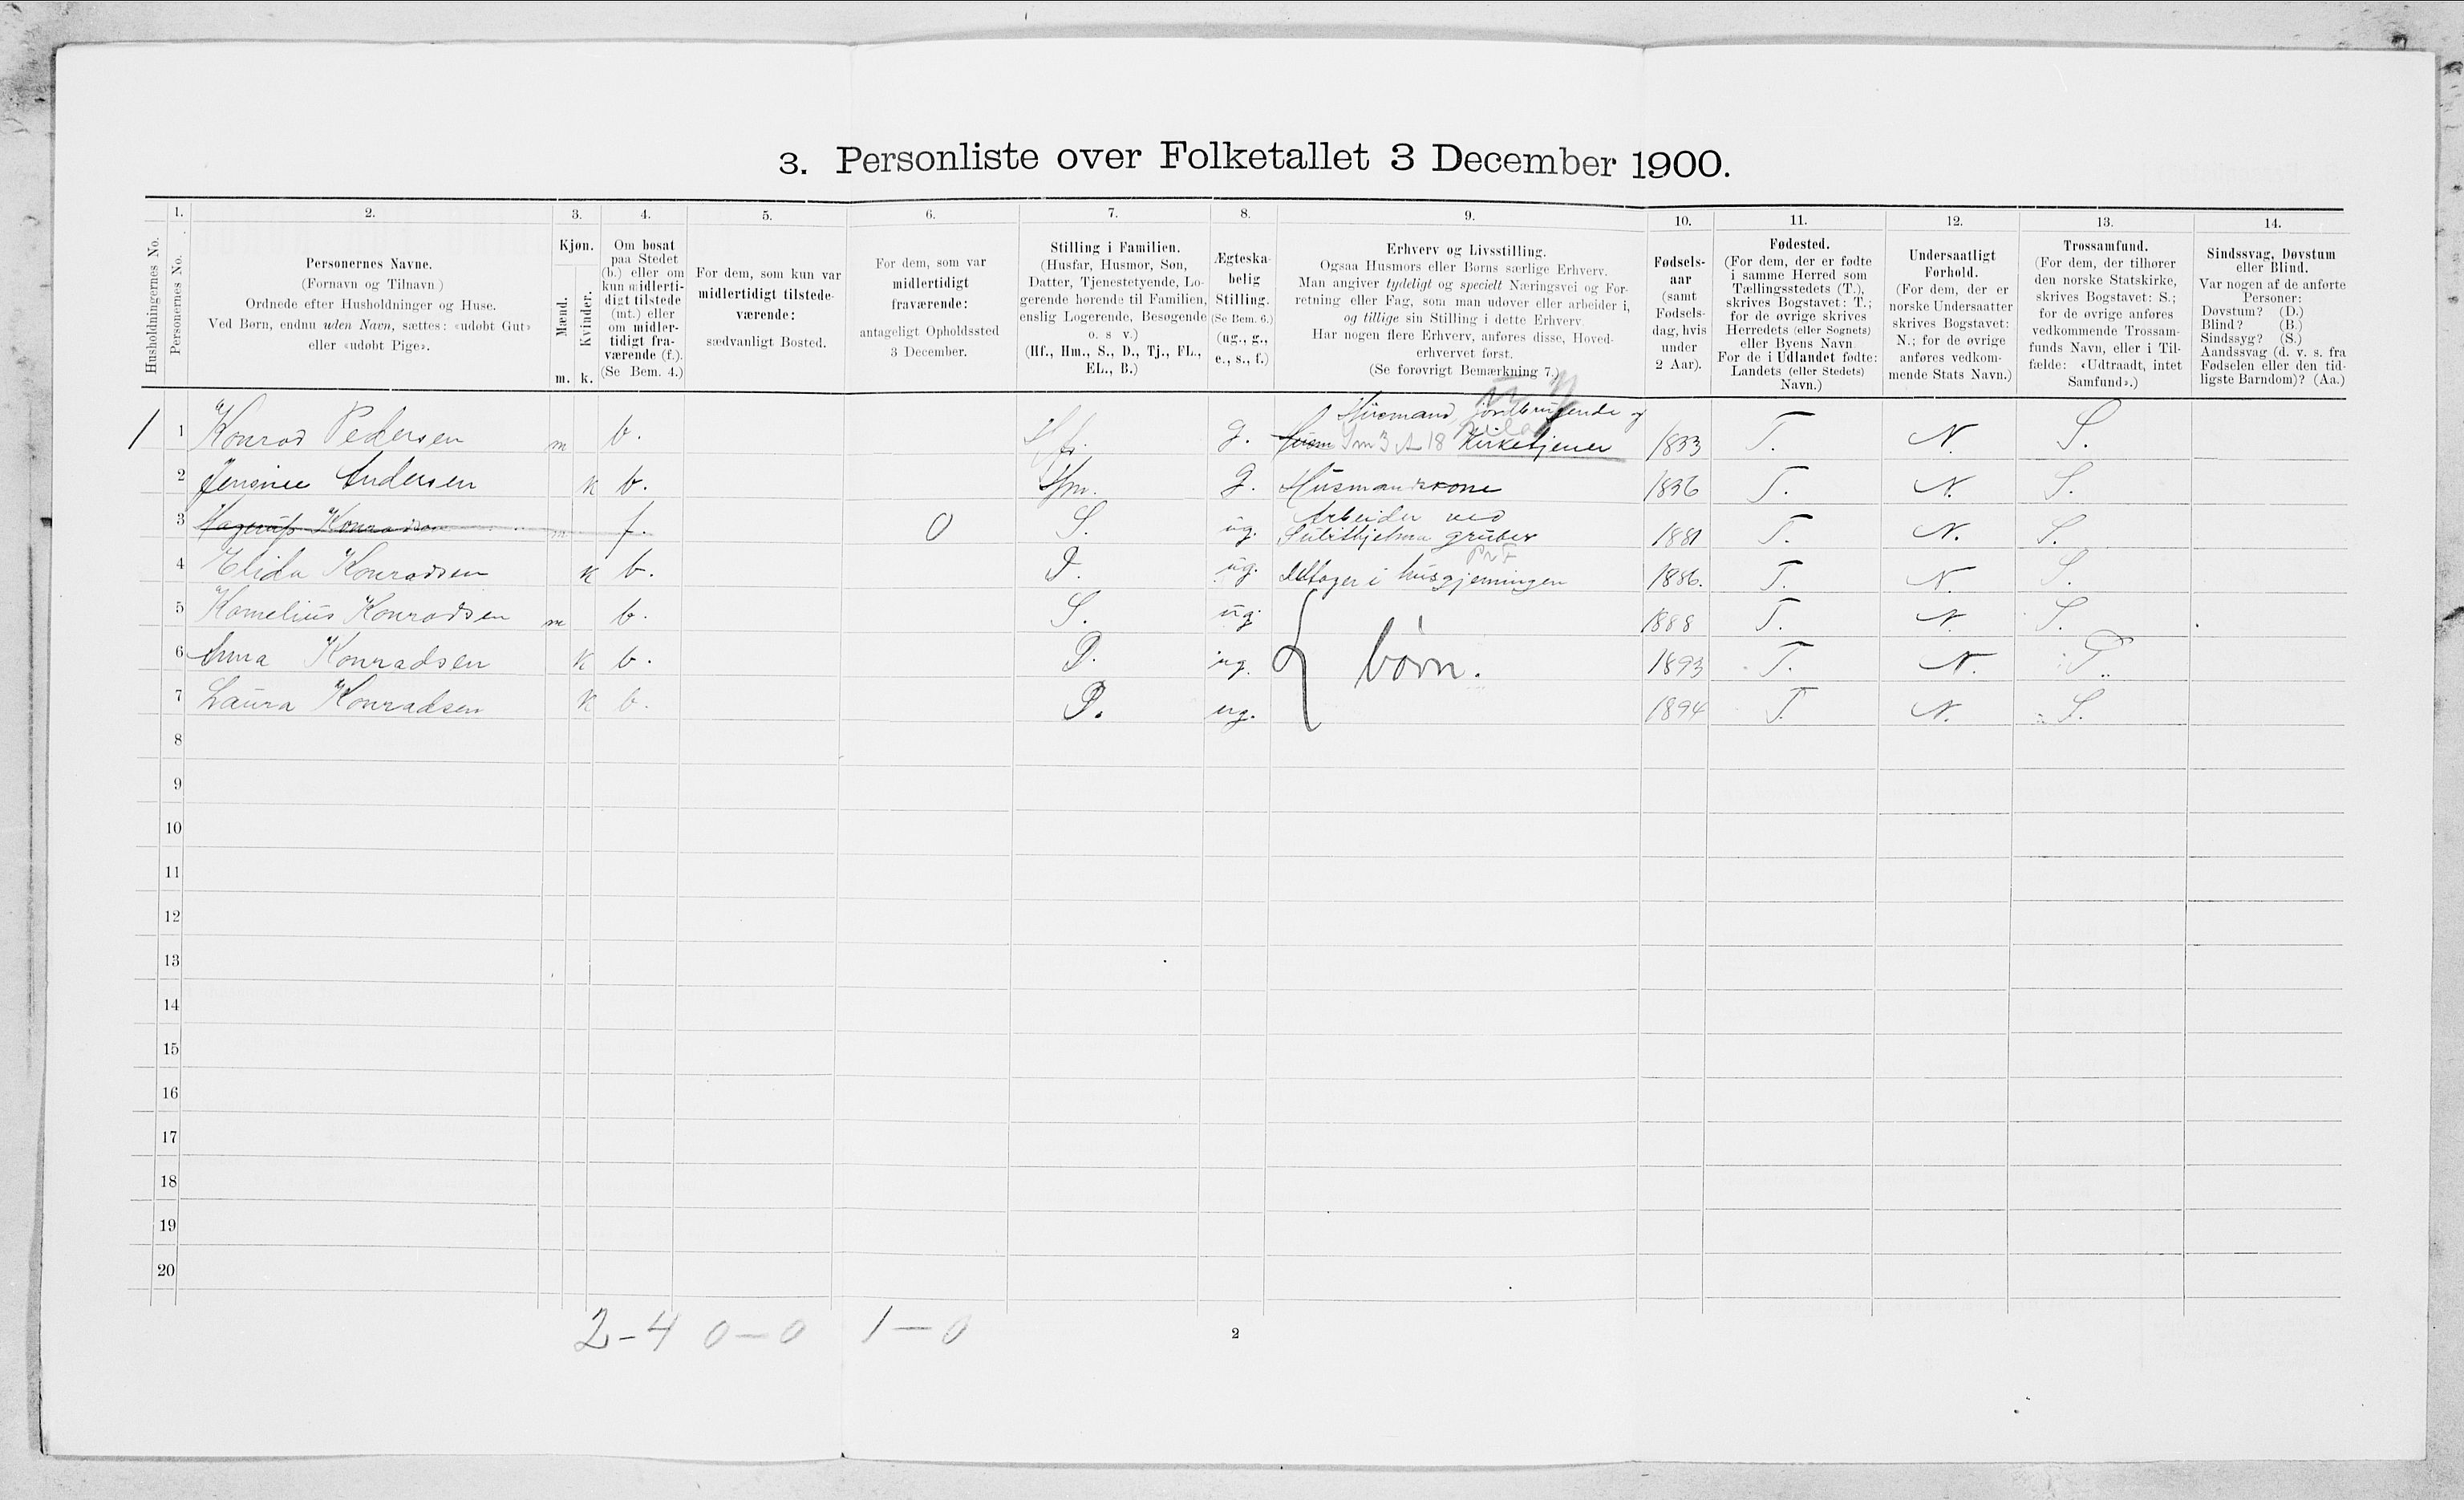 3. Personliste over Folketallet 3 December 1900.
1. 2. 3. 4. 5. 6. 7. 8. 9. 10. 11. 12. 13. 14.
Husholdningernes No.
Personernes No.
Personernes Navne.
(Fornavn og Tilnavn)
Ordnede efter Husholdninger og Huse.
Ved Børn, endnu uden Navn, sættes: «udøbt Gut»
eller «udøbt Pige».
Kjøn.
Mænd.
Kvinder.
m. k.
Om bosat
paa Stedet
(b.) eller om
kun midlerti-
digt tilstede
(mt.) eller
om midler-
tidigt fra-
værende (f.).
(Se Bem. 4.)
For dem, som kun var
midlertidigt tilstede-
værende:
sædvanligt Bosted.
For dem, som var
midlertidigt
fraværende:
antageligt Opholdssted
3 December.
Stilling i Familien.
(Husfar, Husmor, Søn,
Datter, Tjenestetyende, Lo-
gerende hørende til Familien,
enslig Logerende, Besøgende
o. s. v.)
(Hf., Hm., S., D., Tj., FL.,
EL., B.)
Ægteska-
belig
Stilling.
(Se Bem. 6.)
(ug., g.,
e., s., f.)
Erhverv og Livsstilling.
Ogsaa Husmors eller Børns særlige Erhverv.
Man angiver tydeligt og specielt Næringsvei og For-
retning eller Fag, som man udøver eller arbeider i,
og tillige sin Stilling i dette Erhverv.
Har nogen flere Erhverv, anføres disse, Hoved-
erhvervet først.
(Se forøvrigt Bemærkning 7.)
Fødsels-
aar
(samt
Fødsels-
dag, hvis
under
2 Aar).
Fødested.
(For dem, der er fødte
i samme Herred som
Tællingsstedets (T.),
skrives Bogstavet: T.;
for de øvrige skrives
Herredets (eller Sognets)
eller Byens Navn.
For de i Udlandet fødte:
Landets (eller Stedets)
Navn.)
Undersaatligt
Forhold.
(For dem, der er
norske Undersaatter
skrives Bogstavet:
N.; for de øvrige
anføres vedkom-
mende Stats Navn.)
Trossamfund.
(For dem, der tilhører
den norske Statskirke,
skrives Bogstavet: S.;
for de øvrige anføres
vedkommende Trossam-
funds Navn, eller i Til-
fælde: «Udtraadt, intet
Samfund».)
Sindssvag, Døvstum
eller Blind.
Var nogen af de anførte
Personer:
Døvstum? (D.)
Blind? (B.)
Sindssyg? (S.)
Aandssvag (d. v. s. fra
Fødselen eller den tid-
ligste Barndom)? (Aa.)
Husmand, jordbrugende og
1 1 Konrad Pedersen m b. Hf. g. Husm Sm 3 A 18 Kirketjener 1833 T. N. S.
2 Jensine Andersen k b. Hm. g. Husmandskone 1836 T. N. S.
Arbeider ved
3 Hagerup Konradsen m f. 0 S. ug. Sulithjelma gruber 1881 T. N. S.
4 Elida Konradsen k b. D. ug. deltager i husgjerningen 1886. T. N. S.
5 Kornelius Konradsen m b. S. ug. 1888 T. N. S.
6 Anna Konradsen k b. D. ug. børn. 1893 T. N. S.
7 Laura Konradsen k b. D. ug. 1894 T. N. S.
8
9
10
11
12
13
14
15
16
17
18
19
20
2-4 0-0 1-0
2